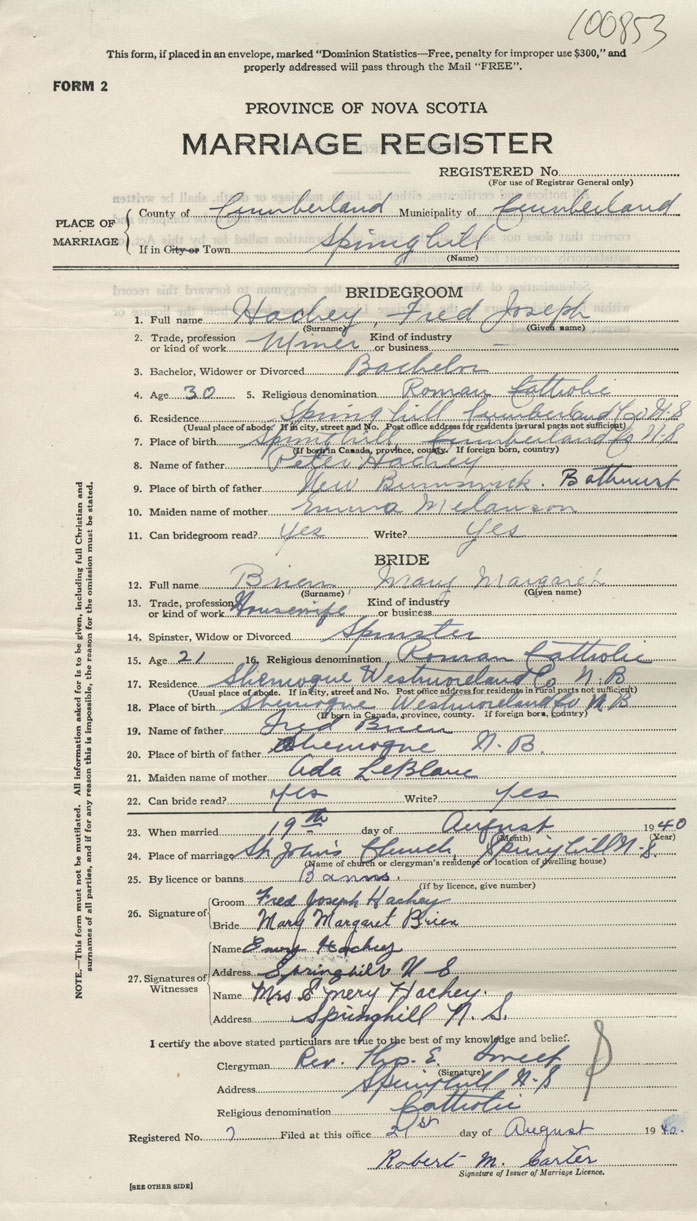 100853
This form, if placed in an envelope, marked "Dominion Statistics—Free, penalty for improper use $300," and
properly addressed will pass through the Mail "FREE".
FORM 2
PROVINCE OF NOVA SCOTIA
MARRIAGE REGISTER
REGISTERED No.
(For use of Registrar General only)
PLACE OF MARRIAGE
County of Cumberland Municipality of Cumberland
If in City or Town Springhill
(Name)
BRIDEGROOM
1. Full name Hachey, Fred Joseph
(Surname) (Given name)
2. Trade, profession or kind of work Miner Kind of industry or business
3. Bachelor, Widower or Divorced Bachelor
4. Age 30 5. Religious denomination Roman Catholic
6. Residence Springhill Cumberland Co N.S
(Usual place of abode. If in city, street and No. Post office address for residents in rural parts not sufficient)
7. Place of birth Springhill, Cumberland Co N S
(If born in Canada, province, county. If foreign born, country)
8. Name of father Peter Hachey
9. Place of birth of father New Brunswick. Bathurst
10. Maiden name of mother Emma Melanson
11. Can bridegroom read? Yes Write? Yes
BRIDE
12. Full name Brien, Mary Margaret
(Surname) (Given name)
13. Trade, profession or kind of work Housewife Kind of industry or business
14. Spinster, Widow or Divorced Spinster
15. Age 21 16. Religious denomination Roman Catholic
17. Residence Shemogue Westmoreland Co N.B
(Usual place of abode. If in city, street and No. Post office address for residents in rural parts not sufficient)
18. Place of birth Shemogue Westmoreland Co N B
(If born in Canada, province, county. If foreign born, country)
19. Name of father Fred Brien
20. Place of birth of father Shemogue N.B.
21. Maiden name of mother Ada LeBlanc
22. Can bride read? Yes Write? yes
23. When married 19th day of August 1940
(Month) (Year)
24. Place of marriage St John's Church, Springhill N.S.
(Name of church or clergyman's residence or location of dwelling house)
25. By licence or banns Banns.
(If by licence, give number)
26. Signature of
Groom Fred Joseph Hachey
Bride Mary Margaret Brien
27. Signatures of Witnesses
Name Emery Hachey
Address Springhill N S
Name Mrs Emery Hachey.
Address Springhill N. S.
I certify the above stated particulars are true to the best of my knowledge and belief.
Clergyman Rev. E.
(Signature)
Address Springhill N.S
Religious denomination Catholic
Registered No. 7 Filed at this office 21st day of August 1940.
Robert M. Carter
Signature of Issuer of Marriage Licence.
[SEE OTHER SIDE]
NOTE.—This form must not be mutilated. All information asked for is to be given, including full Christian and
surnames of all parties, and if for any reason this is impossible, the reason for the omission must be stated.